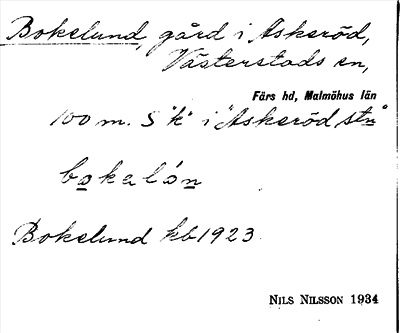 Bokelund, gård i Askeröd,
Västerstads sn,
Färs hd, Malmöhus län
100 m. S "k" i "Askeröd stn"
bokalón
Bokelund kb 1923.
NILS NILSSON 1934